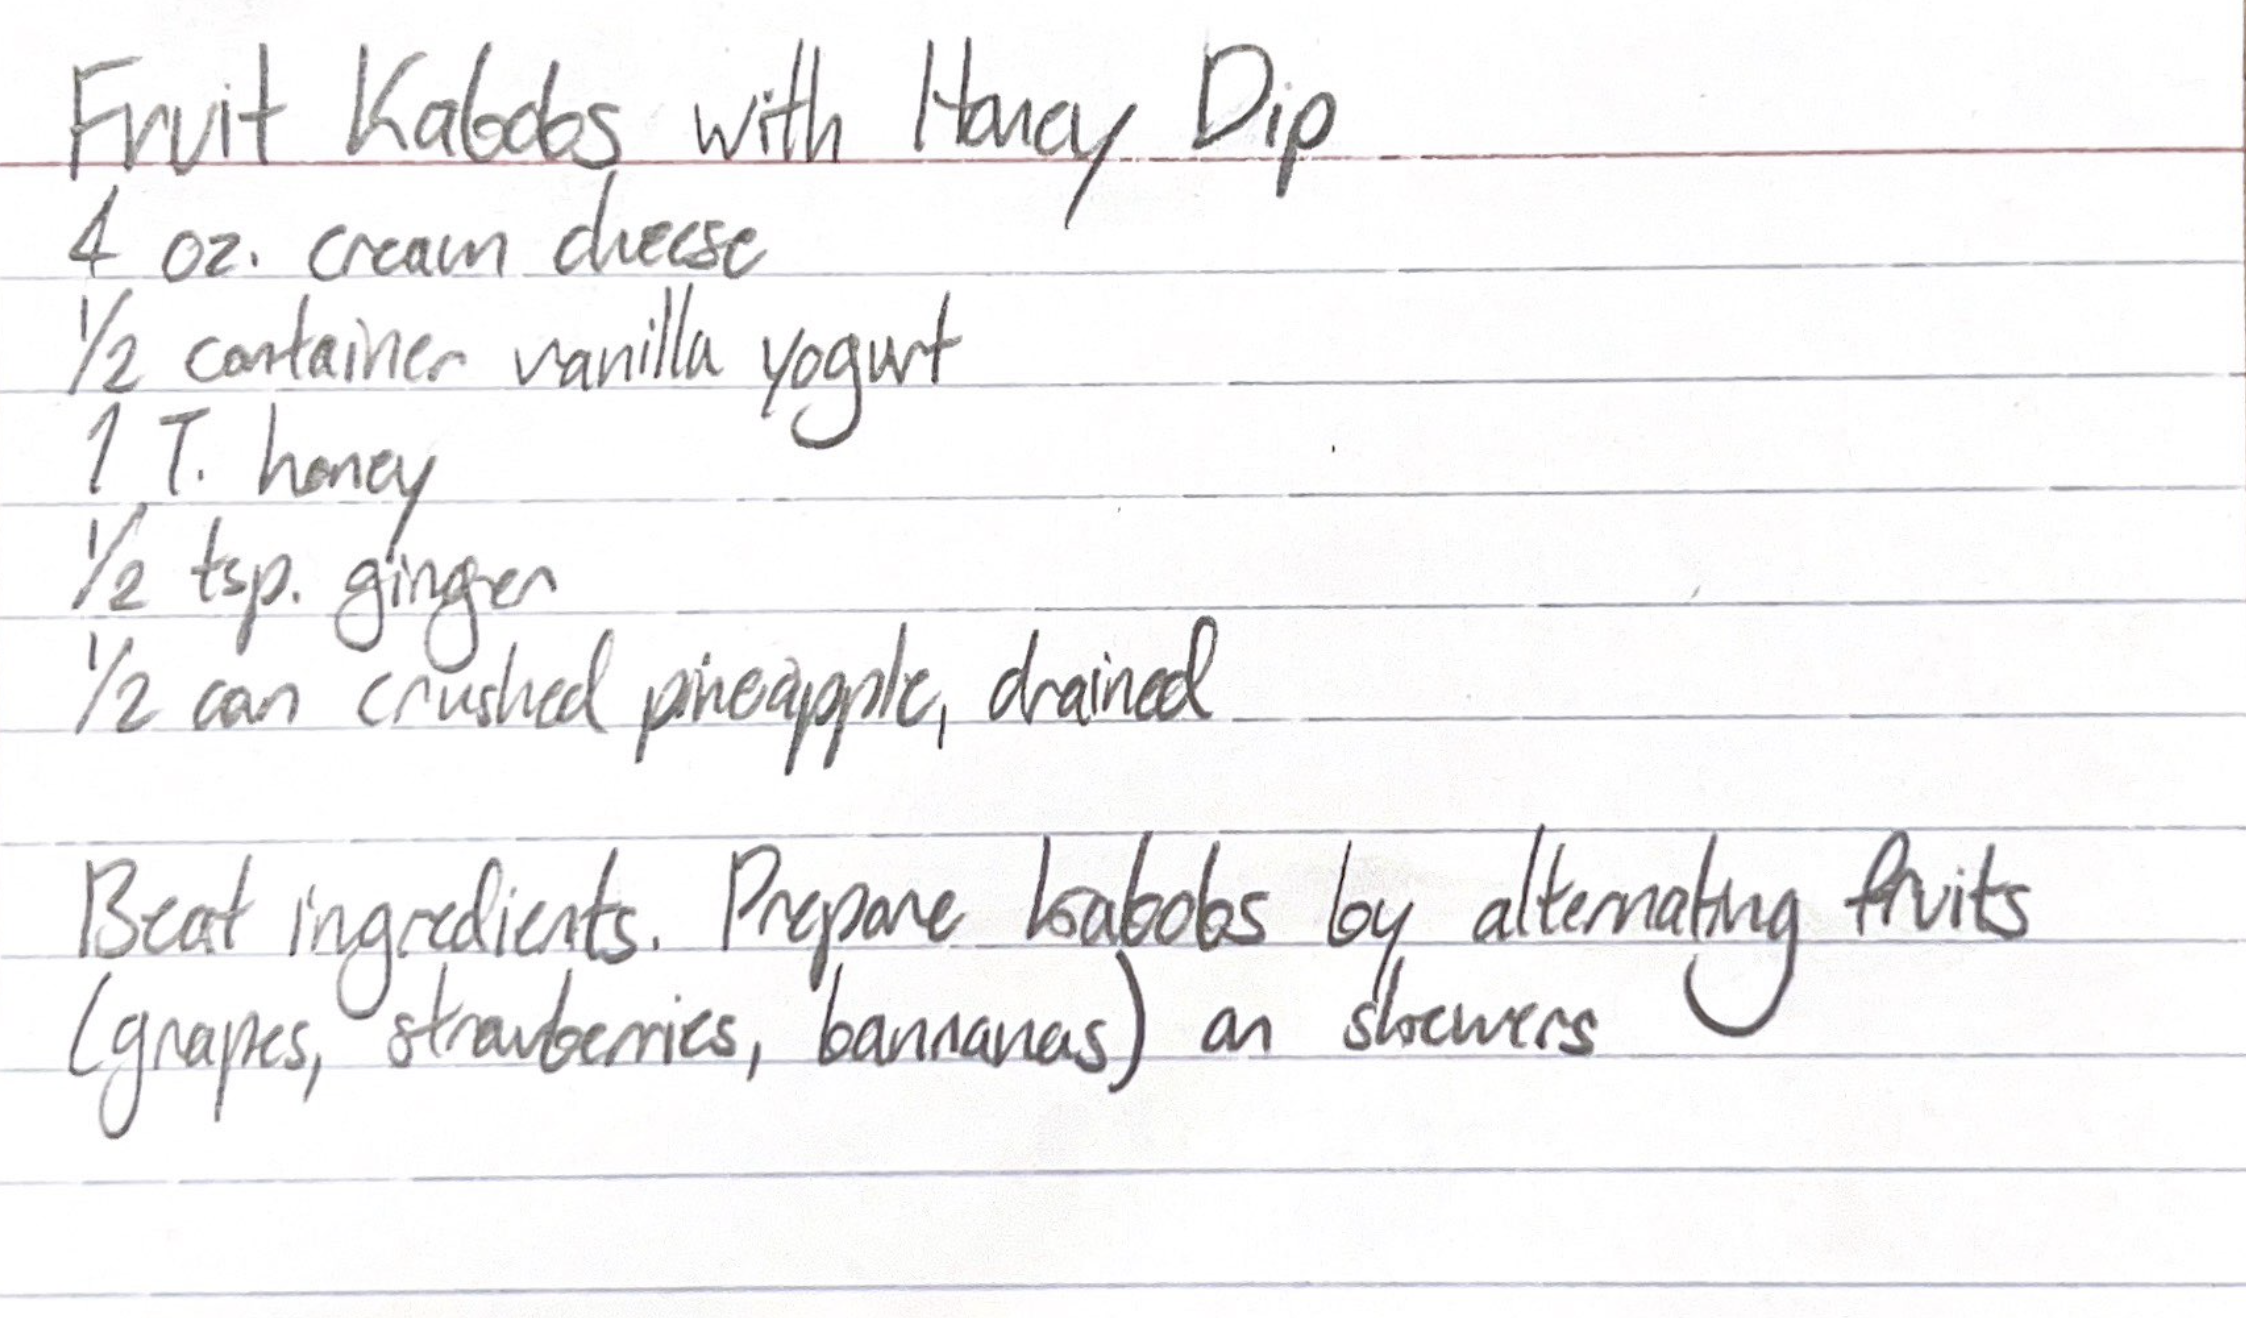 Fruit Kabobs with Honey Dip
4 oz. cream cheese
1/2 container vanilla yogurt
1 T. honey
1/2 tsp. ginger
1/2 can crushed pineapple, drained
Beat ingredients. Prepare kabobs by alternating fruits
(grapes, strawberries, bannanas) on skewers